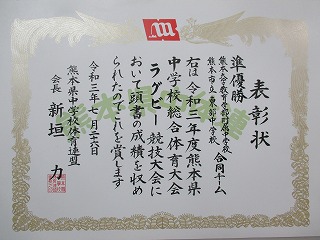 表彰状
準優勝
熊本大学教育学部附属中学校
熊本市立東部中学校
合同チーム
右は令和三年度熊本県
中学校総合体育大会
ラグビー競技大会に
おいて頭書の成績を収め
られたのでこれを賞します
令和三年七月二十六日
熊本県中学校体育連盟
会長 新垣 力